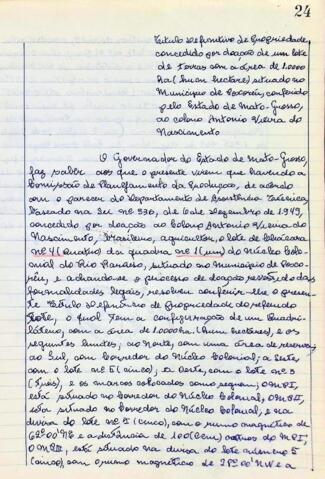 24
Título Definitivo de Propriedade,
concedido por doação de um lote
de terras com a área de 1.0000
ha (hum hectare) situado no
Município de Poconé, conferido
pelo Estado de Mato-Grosso,
ao colono Antonio Vieira do
Nascimento
O Governador do Estado de Mato-Grosso,
faz saber aos que o presente virem que havendo a
Comissão de Planejamento da Produção, de acordo
com o parecer do Departamento de Assistência Técnica,
baseado na Lei nº 336, de 6 de dezembro de 1949,
concedido por doação ao colono Antonio Vieira do
Nascimento, brasileiro, agricultor, o lote de
nº 4 (quatro) da quadra nº 1 (um) do Núcleo Colo-
nial do Rio situado no Municipio de Poco-
né, e achando-se o processo de doação revestido das
formalidades legais, resolveu conferir-lhe o presen-
te Título definitivo de propriedade do referido
lote, o qual tem a configuração de um quadri-
látero, com a área de 1.0000 ha (hum hectare), e os
seguintes limites: ao Norte, com uma área de reserva,
ao Sul, com corredor do Núcleo Colonial, a Leste,
com o lote nº 5 (cinco), a Oeste, com o lote nº 3
(três), e os marcos colocados como seguem: O MPI,
está situado no corredor do Núcleo Colonial, O M II,
está situado no corredor do Núcleo Colonial, e na
divisa do lote nº 5 (cinco), com o rumo magnético de
62º00' NE e a distância de 100 (cem) metros do MPI;
O M III, está situado na divisa do lote número 5
(cinco), com o rumo magnético de 28º00' NW e a